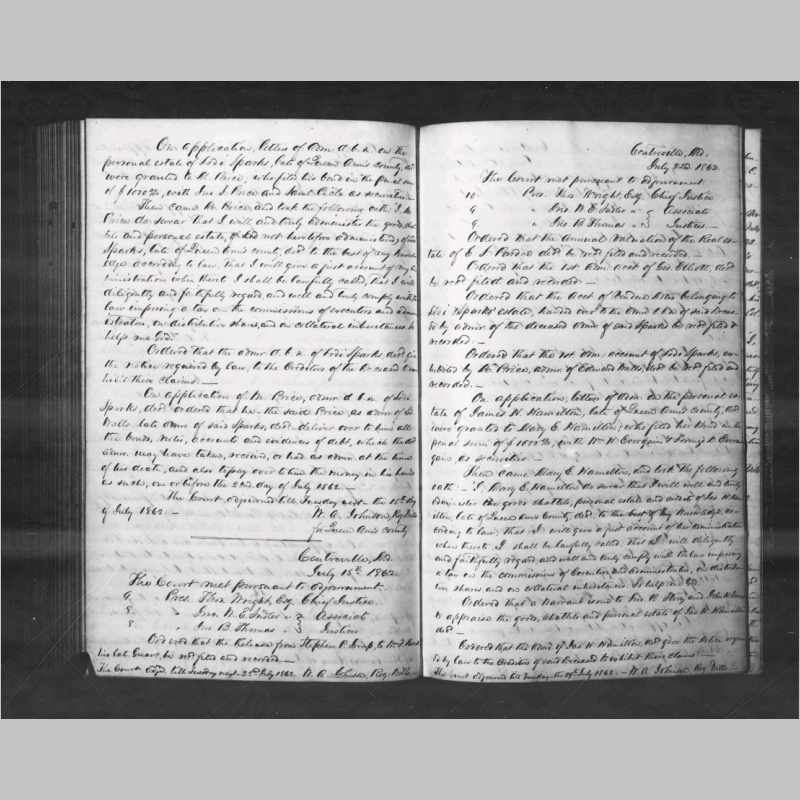 On application, letters of Adm. d. b. n. on the
personal estate of Levi Sparks, late of Queen Ann's county, dec'd
were granted to M. Price, who filed his bond in the penal sum
of $1000 00/100, with Jno. S. Price and
Then came M. Price, and took the following oath: I, M.
Price do swear that I will well and truly administer the goods, chat-
tels and personal estate, not heretofore administered, of Levi
Sparks, late of Queen Ann's county, dec'd to the best of my knowl-
edge according to law, that I will give a just account of my ad-
ministration when thereto I shall be lawfully called, that I will
diligently and faithfully regard, and well and truly comply with the
law imposing a tax on the commissions of executors and admin-
istrators, on distributive shares, and on collateral inheritances. So
help me God.
Ordered that the admr d. b. n. of Levi Sparks, dec'd give
the notice required by law, to the Creditors of the deceased to ex-
hibit their claims. —
On application of M. Price, admr d. b. n. of Levi
Sparks, dec'd ordered that he the said Price, as admr of
Walls late admr of said Sparks, dec'd deliver over to him all
the bonds, notes, accounts and evidences of debt, which the dec'd
admr. may have taken, received, or had as admr. at the time
of his death, and also to pay over to him the money in his hands
as such, on or before the 22nd day of July 1862. —
The Court adjourned till Tuesday next the 15th day
of July 1862. —
W. A. Johnson, Reg. Wills
for Queen Ann's county
Centreville, Md.
July 15th 1862
The Court met pursuant to adjournment.
9 Pres. Thos. Wright, Esq. Chief Justice
8 " Jno. W. E. Sudler " Associate
8 " Jno. B. Thomas " Justices
Ordered that the Release from Stephen to
his Col. Guard. be rec'd filed and recorded —
The Court adj'd. till Tuesday next 22nd July 1862. W. A. Johnson, Reg. Wills
Centreville, Md.
July 22d. 1862
The Court met pursuant to adjournment
10 Pres. Thos. Wright, Esq. Chief Justice
9 " Jno. W. E. Sudler " Associate
9 " Jno. B. Thomas " Justices. —
Ordered that the Annual Valuation of the Real es-
tate of E. S. dec'd. be rec'd. filed and recorded. —
Ordered that the 1st Adm. acct of Geo. Elliott, dec'd
be rec'd filed and recorded. —
Ordered that the acct of belonging to
Levi Sparks' estate, handed over to the Admr d. b. n. of said deceas-
ed by admr of the deceased admr of said Sparks be rec'd filed &
recorded. —
Ordered that the 1st Adm. account of Levi Sparks, ex-
hibited by M. Price, admr of Edward Walls, dec'd be rec'd filed and
recorded. —
On application, letters of Adm. on the personal es-
tate of James W. Hamilton, late of Queen Ann's county, dec'd
were granted to Mary E. Hamilton; who filed her bond in the
penal sum of $1000 00/100, with Wm. W.
as securities. —
Then came Mary E. Hamilton, and took the following
oath: — I, Mary E. Hamilton do swear that I will well and truly
administer the goods chattels, personal estate and credits of Jas. W. Ham-
ilton, late of Queen Ann's County, dec'd. to the best of my knowledge, ac-
cording to law, that I will give a just account of my administration
when thereto I shall be lawfully called, that I will diligently
and faithfully regard, and well and truly comply with the law imposing
a tax on the commissions of Executors and administrators, on distribu-
tive shares and on collateral inheritances. So help me God.
Ordered that a Warrant issue to and
to appraise the goods, chattels and personal estate of Jas. W. Hamilton
dec'd —
Ordered that the Admr of Jas. W. Hamilton, dec'd give the notice requir-
ed by law to the Creditors of said deceased to exhibit their claims. —
The Court adjourned till Tuesday the 29th July 1862. — W. A. Johnson Reg. Wills —